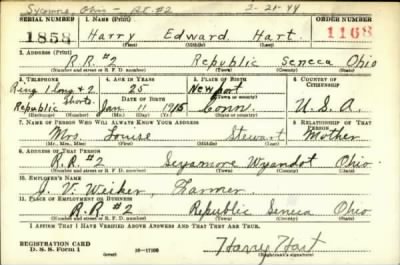 Sycamore, Ohio - Rt. #2 3-21-44
SERIAL NUMBER 1. NAME (Print) ORDER NUMBER
1858 Harry Edward Hart 1168
(First) (Middle) (Last)
2. ADDRESS (Print)
R.R. #2 Republic Seneca Ohio
(Number and street or R. F. D. number) (Town) (County) (State)
3. TELEPHONE 4. AGE IN YEARS 5. PLACE OF BIRTH 6. COUNTRY OF CITIZENSHIP
Ring 1 long & 2 shorts. 25 Newport
DATE OF BIRTH
Republic Jan. 11 1915 Conn. U.S.A.
(Exchange) (Number) (Mo.) (Day) (Yr.) (State or country)
7. NAME OF PERSON WHO WILL ALWAYS KNOW YOUR ADDRESS 8. RELATIONSHIP OF THAT PERSON
Mrs. Louise Stewart Mother
(Mr., Mrs., Miss) (First) (Middle) (Last)
9. ADDRESS OF THAT PERSON
R.R. #2 Sycamore Wyandot Ohio
(Number and street or R. F. D. number) (Town) (County) (State)
10. EMPLOYER'S NAME
J. V. Weiker, Farmer
11. PLACE OF EMPLOYMENT OR BUSINESS
R.R #2 Republic Seneca Ohio
(Number and street or R. F. D. number) (Town) (County) (State)
I AFFIRM THAT I HAVE VERIFIED ABOVE ANSWERS AND THAT THEY ARE TRUE.
REGISTRATION CARD
D. S. S. Form 1 (over) 16-17105 Harry Hart